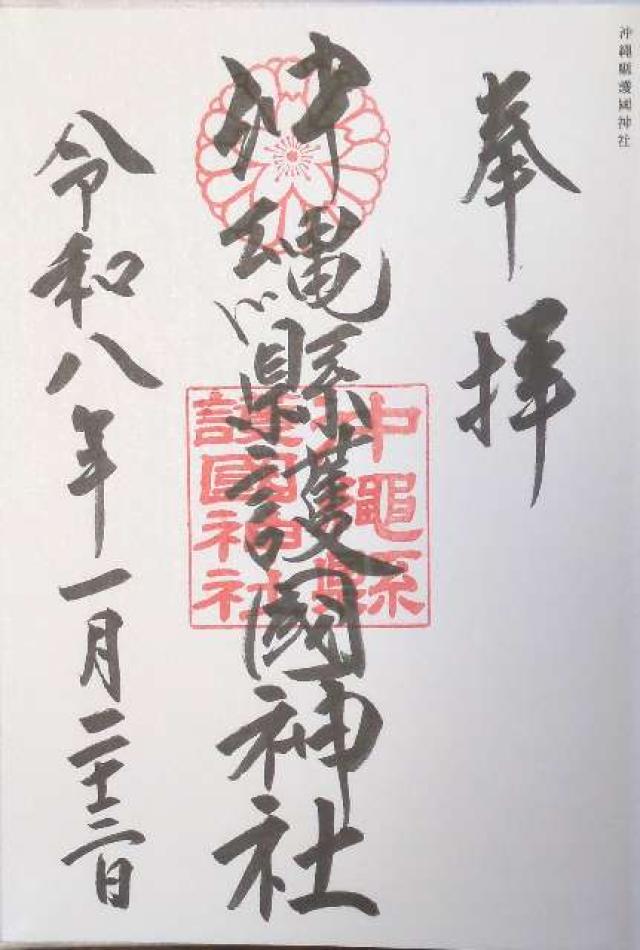 沖縄縣護國神社
奉拝
沖縄縣護國神社
沖縄縣
護國神社
令和八年一月二十三日